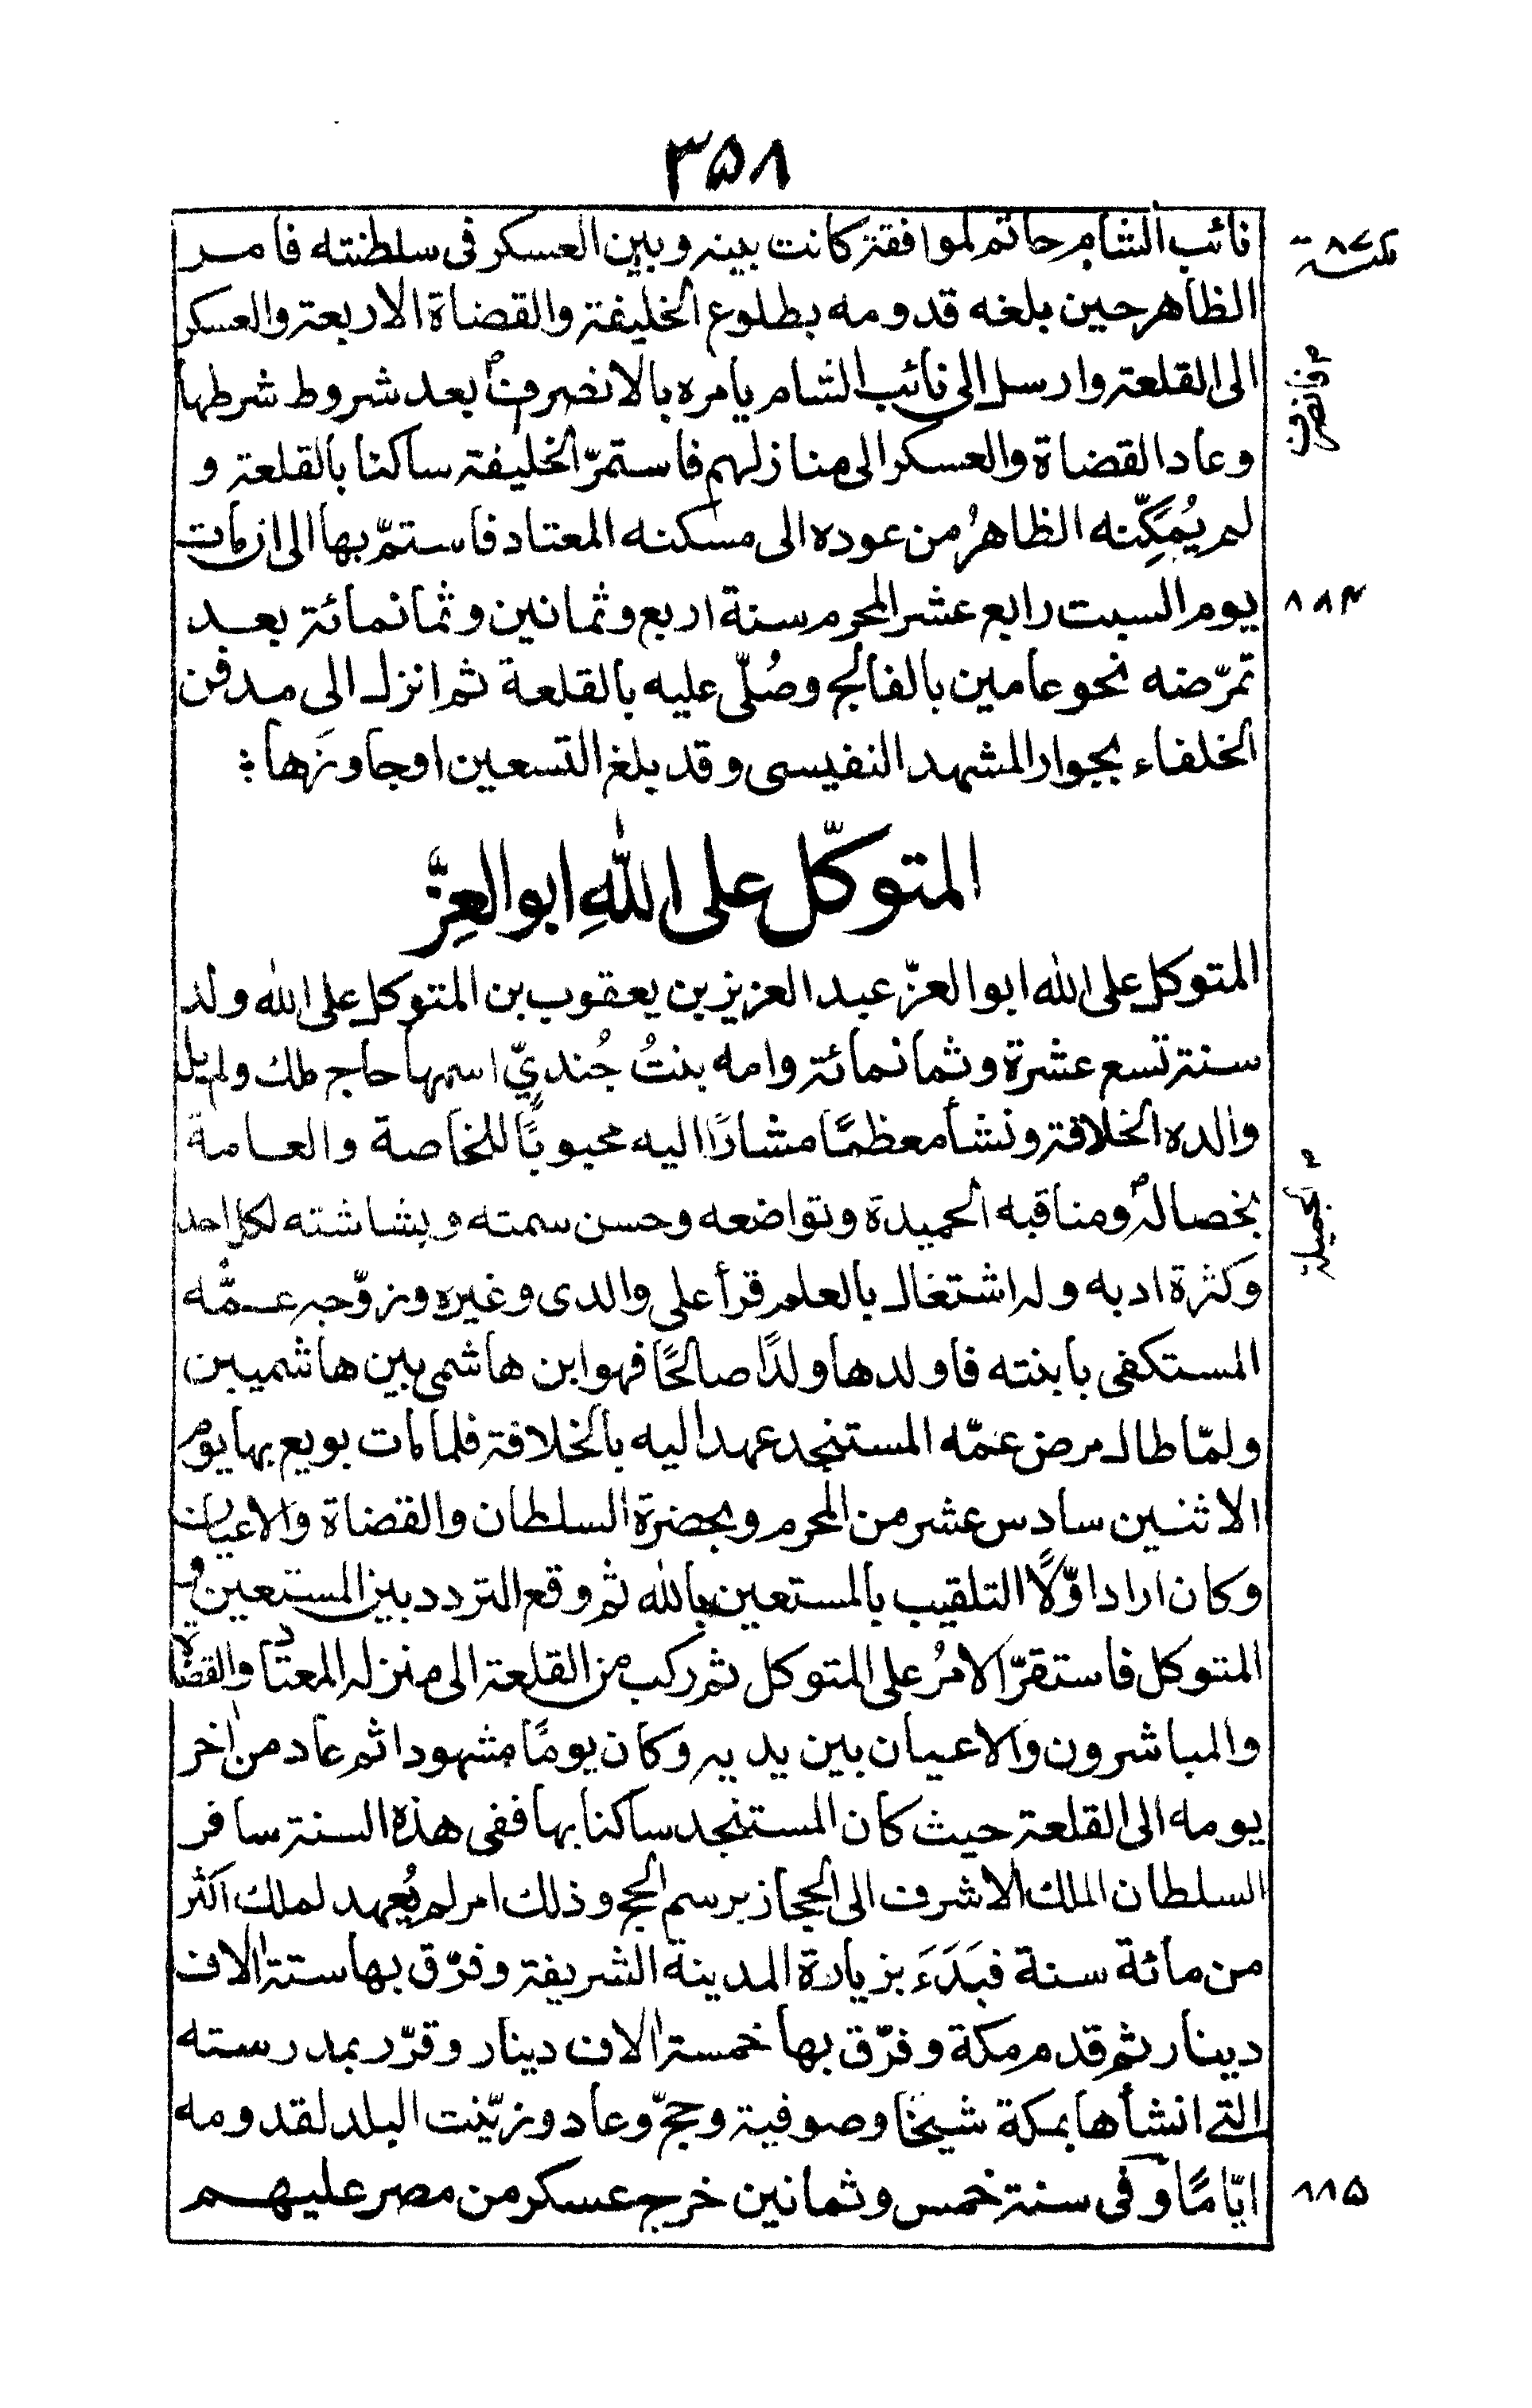 ۳۵۸
نائب الشام حاتم لموافقة كانت بينه وبين العسكر فى سلطنته فامر
الظاهر حين بلغه قدومه بطلوع الخليفة والقضاة الاربعة والعسكر
الى القلعة وارسل الى نائب الشام يامره بالانصرف بعد شروط شرطها
وعاد القضاة والعسكر الى منازلهم فاستمرّ الخليفة ساكنا بالقلعة و
لم يُمَكِّنه الظاهرُ من عوده الى مسكنه المعتاد فاستمّر بها الى ان مات
يوم السبت رابع عشر المحرم سنة اربع وثمانين وثمانمائة بعد
تمرّضه نحو عامين بالفالج وصُلّى عليه بالقلعة ثم انزل الى مدفن
الخلفاء بجوار المشهد النفيسى وقد بلغ التسعين او جاوزَها
المتوكّل على اللهِ ابو العِزّ
المتوكل على الله ابو العزّ عبد العزيز بن يعقوب بن المتوكل على الله ولد
سنة تسع عشرة وثمانمائة وامه بنتُ جُنديّ اسمها حاج ملك ولم يل
والده الخلافة ونشأ معظمًا مشارًا اليه محبوبًا للخاصة والعامة
بخصاله ومناقبه الحميدة وتواضعه وحسن سمته وبشاشته لكل احد
وكثرة ادبه وله اشتغال بالعلم قرأ على والدى وغيره وزوّجه عمّه
المستكفى بابنته فاولدها ولدًا صالحًا فهو ابن هاشمى بين هاشميين
ولمّا طال مرض عمّه المستنجد عهد اليه بالخلافة فلما مات بويع بها يوم
الاثنين سادس عشر من المحرم وبحضرة السلطان والقضاة والاعيان
وكان اراد اوّلًا التلقيب بالمستعين بالله ثم وقع التردد بين المستعين و
المتوكل فاستقرّ الامرُ على المتوكل ثم ركب من القلعة الى منزله المعتاد والقضاة
والمباشرون والاعيان بين يديه وكان يومًا مشهودا ثم عاد من اخر
يومه الى القلعة حيث كان المستنجد ساكنا بها ففى هذه السنة سافر
السلطان الملك الاشرف الى الحجاز برسم الحج وذلك امر لم يُعهد لملك اكثر
من مائة سنة فبَدَءَ بزيارة المدينة الشريفة وفرّق بها ستة الاف
دينار ثم قدم مكة وفرّق بها خمسة الاف دينار وقرّر بمدرسته
التى انشأها بمكة شيخا وصوفية وحجّ وعاد وزيّنت البلد لقدومه
ايّامًا وفى سنة خمس وثمانين خرج عسكر من مصر عليهم
۸۸۴
الجميلة
۸۸۵